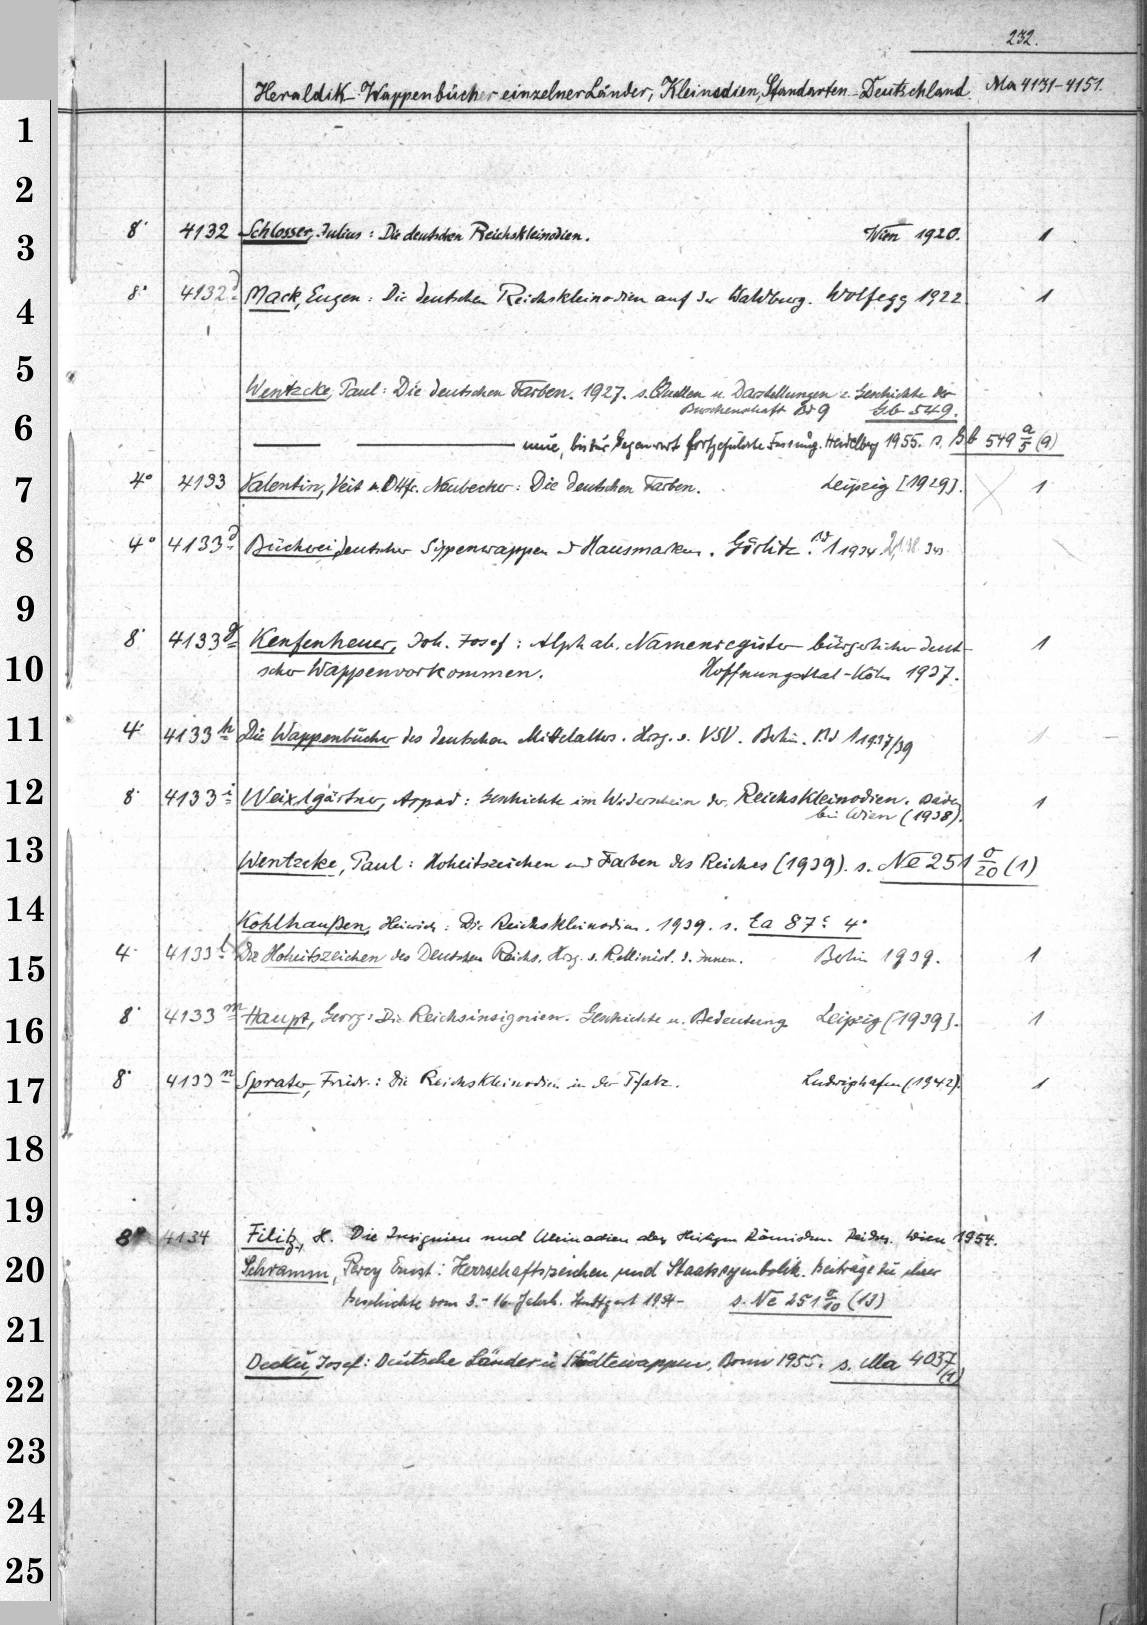 232.
Heraldik - Wappenbücher einzelner Länder, Kleinodien, Standarten - Deutschland Ma 4131-4151.
1
2
3 8° 4132 Schlosser, Julius: Die deutschen Reichskleinodien. Wien 1920. 1
4 8° 4132 d Mack, Eugen: Die deutschen Reichskleinodien auf der Waldburg. Wolfegg 1922 1
5
Wentzcke, Paul: Die deutschen Farben. 1927. s. Quellen u. Darstellungen z. Geschichte der
Burschenschaft Bd 9 Gb 549.
6 neue, bis zur Gegenwart fortgeführte Fassung. Heidelberg 1955. s. Bb 549 a/5 (9)
7 4° 4133 Valentin, Veit u. Ottfr. Neubecker: Die deutschen Farben. Leipzig [1929]. 1
8 4° 4133 d Bücherei deutscher Sippenwappen und Hausmarken. Görlitz. Bd 1 1934
9
8° 4133 g Kenfenheuer, Joh. Josef: Alphab. Namenregister bürgerlicher deut- 1
10 scher Wappenvorkommen. Hoffnungsthal-Köln 1937.
11 4° 4133 h Die Wappenbücher des deutschen Mittelalters. Hrsg. v. VSV. Berlin. Bd 1 1937/39 1
12 8° 4133 i Weixlgärtner, Arpad: Geschichte im Widerschein der Reichskleinodien. Baden 1
bei Wien (1938).
13 Wentzcke, Paul: Hoheitszeichen und Farben des Reiches (1939). s. Ne 251 σ/20 (1)
14 Kohlhaußen, Heinrich: Die Reichskleinodien. 1939. s. Ea 87 c 4°
15 4° 4133 l Die Hoheitszeichen des Deutschen Reichs. Hrsg. v. R. Minist. d. Innern. Berlin 1939. 1
16 8° 4133 m Haupt, Georg: Die Reichsinsignien. Geschichte u. Bedeutung Leipzig [1939]. 1
17 8° 4133 n Sprater, Friedr.: Die Reichskleinodien in der Pfalz. Ludwigshafen (1942). 1
18
19
8° 4134 Filitz, H. Die Insignien und Kleinodien des Heiligen Römischen Reiches. Wien 1954.
20 Schramm, Percy Ernst: Herrschaftszeichen und Staatssymbolik. Beiträge zu ihrer
Geschichte vom 3.-16. Jahrh. Stuttgart 1954- s. Ne 251 σ/10 (13)
21
Decku, Josef: Deutsche Länder u. Städtewappen, Bonn 1955. s. Ma 4037/(1)
22
23
24
25